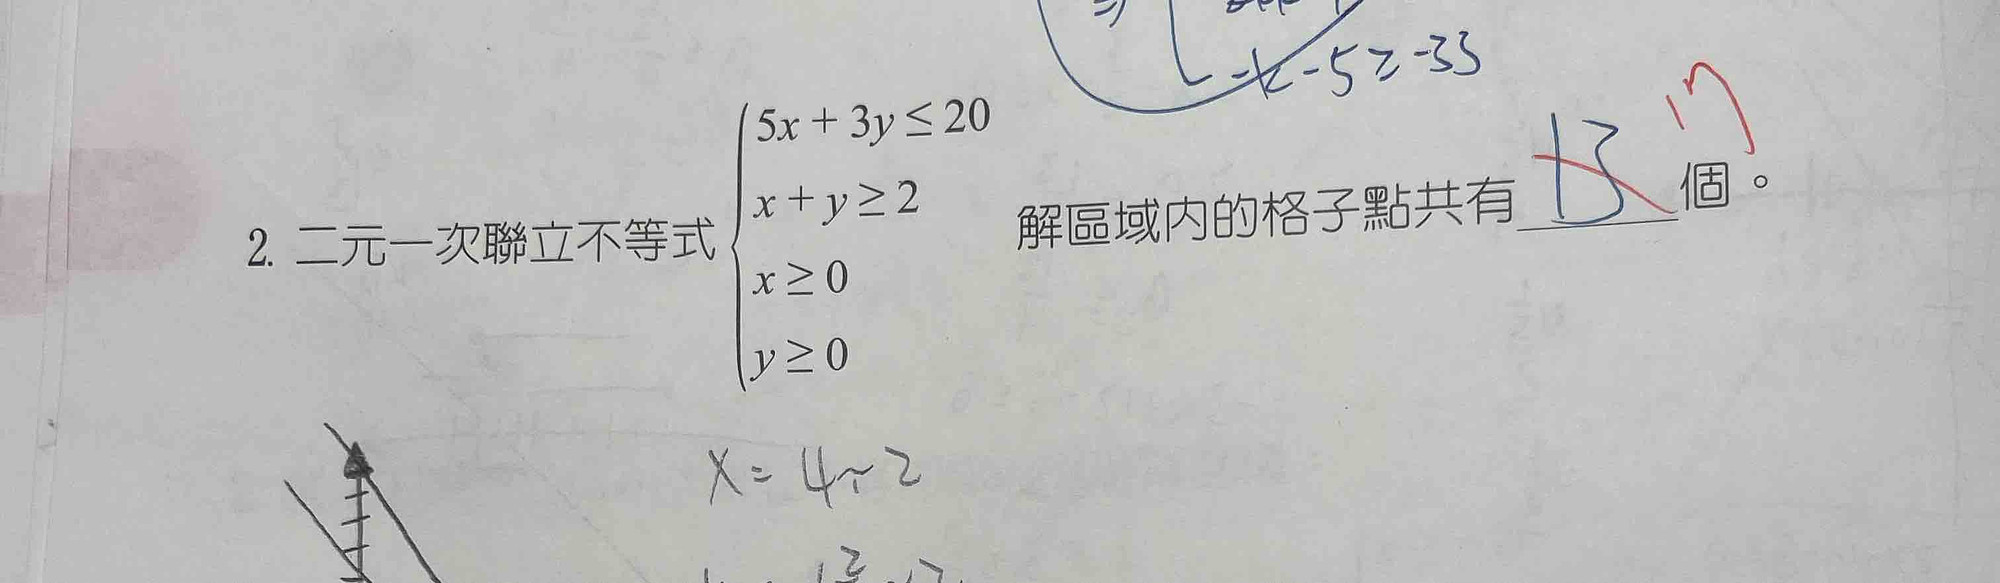 -k-5≥-33
2. 二元一次聯立不等式 { 5x + 3y ≤ 20
x + y ≥ 2
x ≥ 0
y ≥ 0
解區域內的格子點共有 13 個。
17
x = 4~2